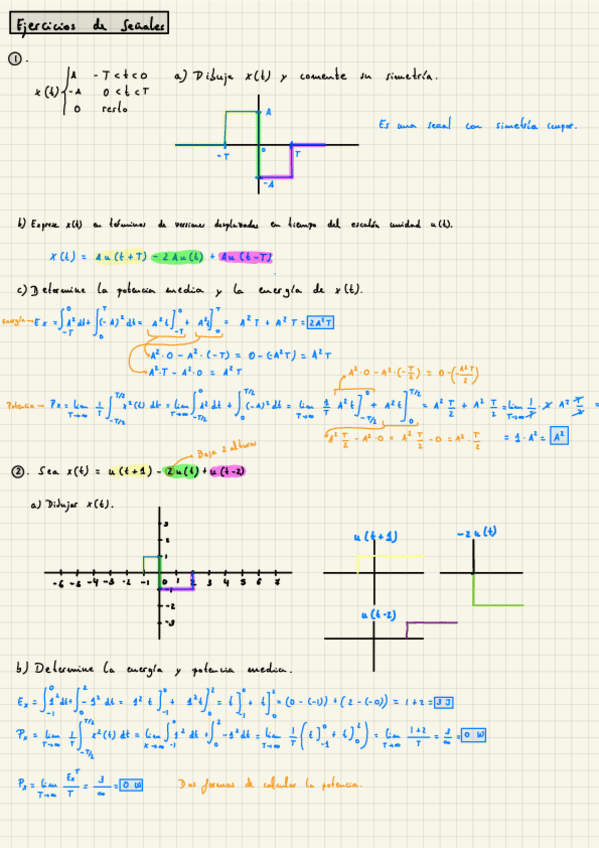 Ejercicios de Señales
①.
x(t) { A -T<t<0
-A 0<t<T
0 resto
a) Dibuja x(t) y comente su simetría.
Es una señal con simetría impar.
A
-T 0 T
-A
b) Exprese x(t) en términos de versiones desplazadas en tiempo del escalón unidad u(t).
x(t) = Au(t+T) - 2Au(t) + Au(t-T)
c) Determine la potencia media y la energía de x(t).
Energía → Ex = ∫_{-T}^{0} A² dt + ∫_{0}^{T} (-A)² dt = A² t]_{-T}^{0} + A² t]_{0}^{T} = A² T + A² T = 2A²T
A²·0 - A²·(-T) = 0 - (-A²T) = A²T
A²·T - A²·0 = A²T
A²·0 - A²·(-T/2) = 0 - (-A²T/2)
Potencia → Px = lim_{T→∞} 1/T ∫_{-T/2}^{T/2} x²(t) dt = lim_{T→∞} ∫_{-T/2}^{0} A² dt + ∫_{0}^{T/2} (-A)² dt = lim_{T→∞} 1/T A² t]_{-T/2}^{0} + A² t]_{0}^{T/2} = A² T/2 + A² T/2 = lim_{T→∞} 1/T · 2 A² T/2 =
A² T/2 - A²·0 = A² T/2 - 0 = A²· T/2
= 1·A² = A²
Baja 2 altura
②. Sea x(t) = u(t+1) - 2u(t) + u(t-2)
a) Dibujar x(t).
u(t+1) -2u(t)
3
2
1
-6 -5 -4 -3 -2 -1 0 1 2 3 4 5 6 7
-1
-2
-3
u(t-2)
b) Determine la energía y potencia media.
Ex = ∫_{-1}^{0} 1² dt + ∫_{0}^{2} -1² dt = 1² t]_{-1}^{0} + 1² t]_{0}^{2} = t]_{-1}^{0} + t]_{0}^{2} = (0 - (-1)) + (2 - (-0)) = 1+2 = 3 J
Px = lim_{T→∞} 1/T ∫_{-T/2}^{T/2} x²(t) dt = lim_{x→∞} ∫_{-1}^{0} 1² dt + ∫_{0}^{2} -1² dt = lim_{T→∞} 1/T (t]_{-1}^{0} + t]_{0}^{2}) = lim_{T→∞} 1+2/T = 3/∞ = 0 W
Px = lim_{T→∞} Ex^T/T = 3/∞ = 0 W
Dos formas de calcular la potencia.